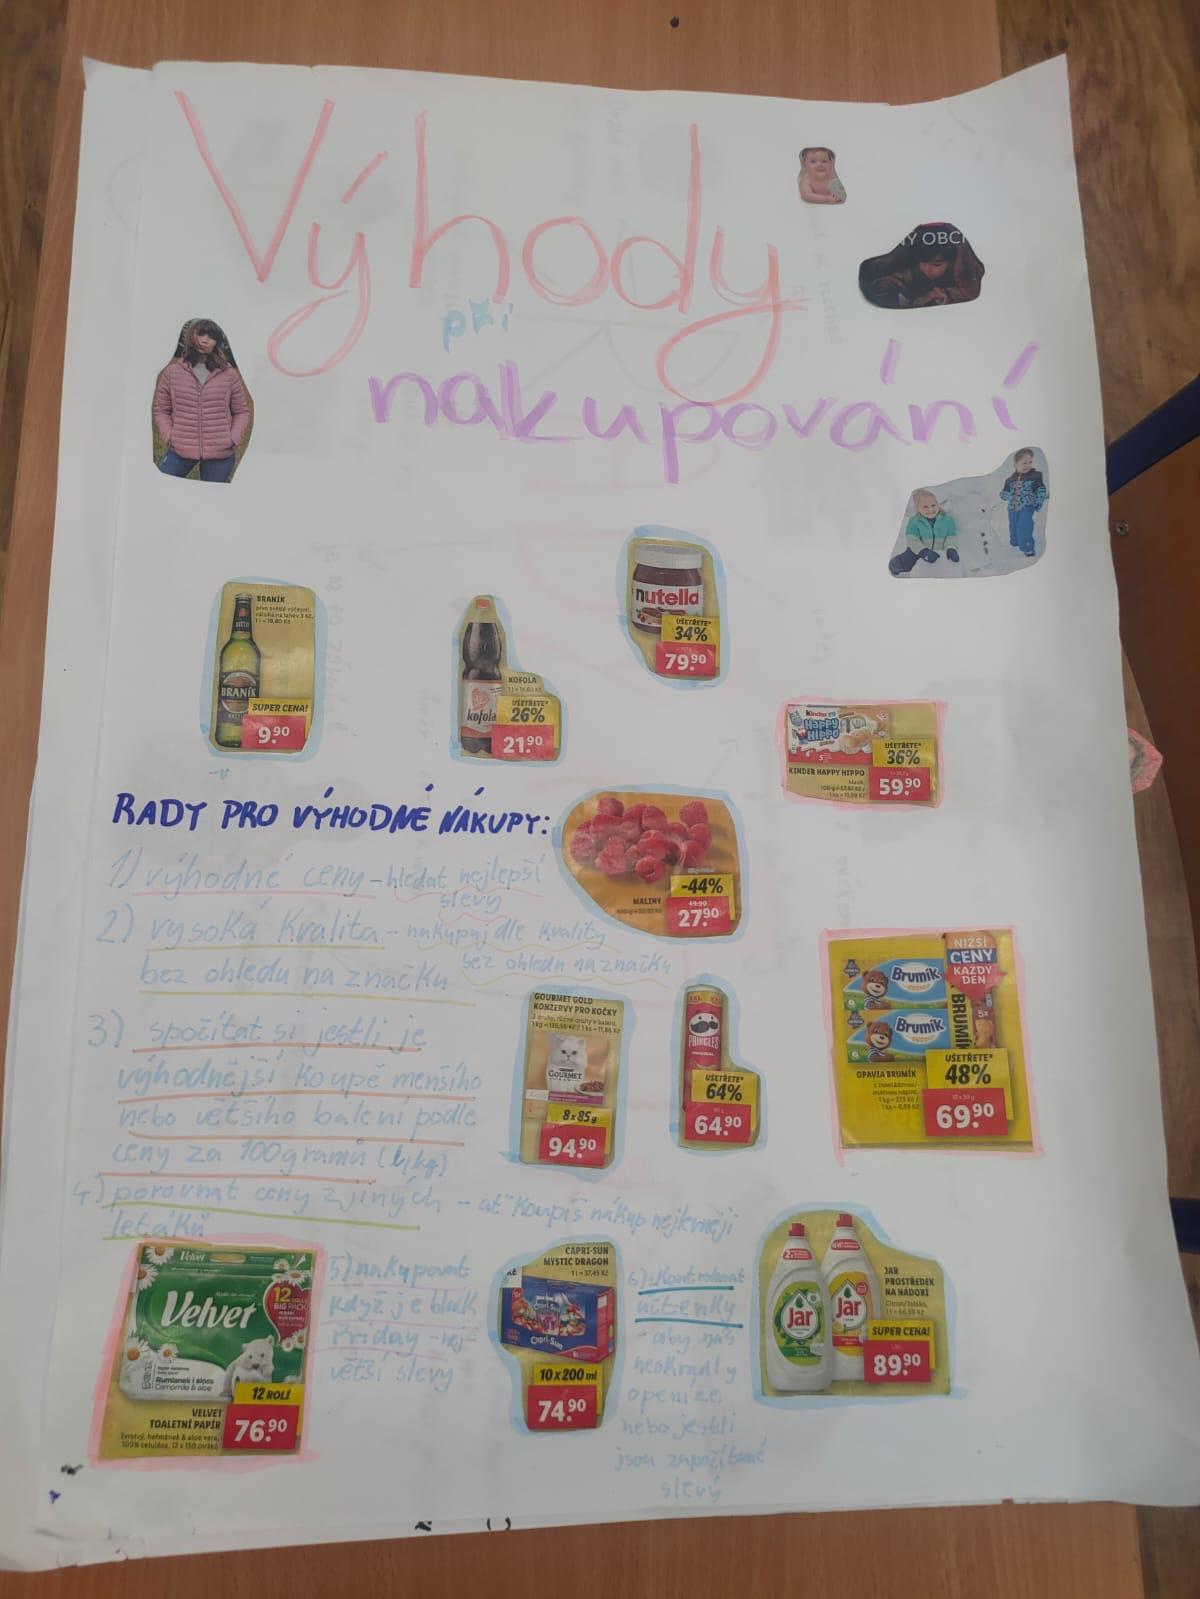 Výhody
při
nakupování
NY OBCH
BRANÍK
pivo světlé výčepní,
záloha na lahev 3 Kč,
1 l = 19,80 Kč
BRANÍK
SUPER CENA!
9.90
KOFOLA
kofola
UŠETŘETE*
26%
21.90
nutella
UŠETŘETE*
34%
79.90
Kinder
HAPPY HIPPO
UŠETŘETE*
36%
KINDER HAPPY HIPPO
59.90
RADY PRO VÝHODNÉ NÁKUPY:
1) výhodné ceny – hledat nejlepší
slevy
2) vysoká kvalita – nakupuj dle kvality
bez ohledu na značku
bez ohledu na značku
3) spočítat si jestli je
výhodnější koupě menšího
nebo většího balení podle
ceny za 100gramů (1/kg)
4) porovnat ceny z jiných – ať koupíš nákup nejlevněji
letáků
-44%
MALINY
49.90
27.90
GOURMET GOLD
KONZERVY PRO KOČKY
GOURMET
8 x 85 g
94.90
XXL
PRINGLES
ORIGINAL
UŠETŘETE*
64%
64.90
NIŽŠÍ
CENY
KAŽDÝ
DEN
Brumík
Brumík
BRUMÍK
5x
UŠETŘETE*
48%
OPAVIA BRUMÍK
69.90
Velvet
Velvet
12
BIG PACK
Rumianek i aloes
Camomile & aloe
12 ROLÍ
VELVET
TOALETNÍ PAPÍR
76.90
5) nakupovat
když je black
friday – nej-
větší slevy
CAPRI-SUN
MYSTIC DRAGON
1 l = 37,45 Kč
Capri-Sun
Capri-Sun
10 x 200 ml
74.90
6) Kontrolovat
účtenky
– aby nás
neokradly
o peníze
nebo jestli
jsou započítané
slevy
Jar
Jar
JAR
PROSTŘEDEK
NA NÁDOBÍ
SUPER CENA!
89.90